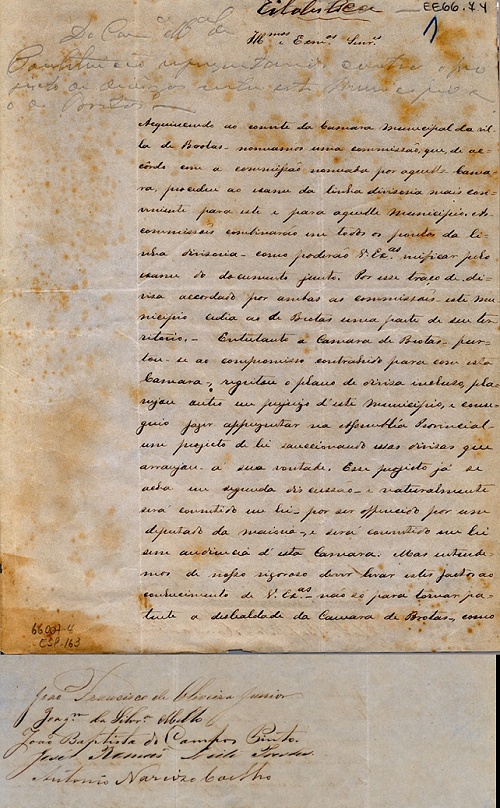 Estatistica
EE66.74
1
Da Camª M.al de
Constituição representando contra o pro
jecto de divizas entre este Municipio e
o de Brotas
Ill.mos e Exm.os Senr.es
Acquiescendo ao convite da Camara Municipal da vil-
la de Brotas - nomeamos uma commissão, que, de ac-
côrdo com a commissão nomeada por aquella Cama-
ra, procedeu ao exame da linha divisoria mais con-
veniente para este e para aquelle Municipio. As
commissões combinarão em todos os pontos da li-
nha divisoria - como poderão V. Ex.as verificar pelo
exame do documento junto. Por esse traço de di-
visa accordado por ambas as commissões - este Mu-
nicipio cedia ao de Brotas uma parte de seu ter-
ritorio. - Entretanto a Camara de Brotas - fur-
tou-se ao compromisso contrahido para com esta
Camara -, regeitou o plano de divisa incluso, pla-
nejou outro em prejuizo d'este Municipio, e conse-
guio fazer appresentar na Assembléa Provincial -
um projecto de lei sanccionando essas divisas que
arranjou á sua vontade. Esse projecto já se
acha em segunda discussão - e naturalmente
será convertido em lei - por ser offerecido por um
deputado da maioria -, e será convertido em lei
sem audiencia d'esta Camara. Mas entende-
mos de nosso rigoroso dever levar estes factos ao
conhecimento de V. Ex.as - não só para tornar pa-
tente a deslealdade da Camara de Brotas, como
66007-4
CSP-163
João Francisco de Oliveira Junior
Joaqm da Silvª Mello
João Baptista de Campos Pinto.
José Romão Leite
Antonio Narcizo Coelho